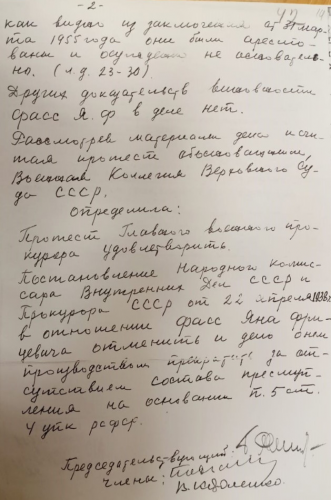 -2-
как видно из заключения от 31 мар-
та 1955 года они были аресто-
ваны и осуждены не основатель-
но. (л.д. 23-30).
Других доказательств виновности
Фасс Я.Ф в деле нет.
Рассмотрев материалы дела и счи-
тая протест обоснованным,
Военная Коллегия Верховного Су-
да СССР.
определила:
Протест Главного военного про-
курора удовлетворить.
Постановление Народного комис-
сара Внутренних Дел СССР и
Прокурора СССР от 22 апреля 1938г.
в отношении Фасс Яна Фри-
цевича отменить и дело о нем
производством прекратить за от-
сутствием состава преступ-
ления на основании п. 5 ст.
4 упк РСФСР.
Председательствующий
Члены:
В. Коваленко.